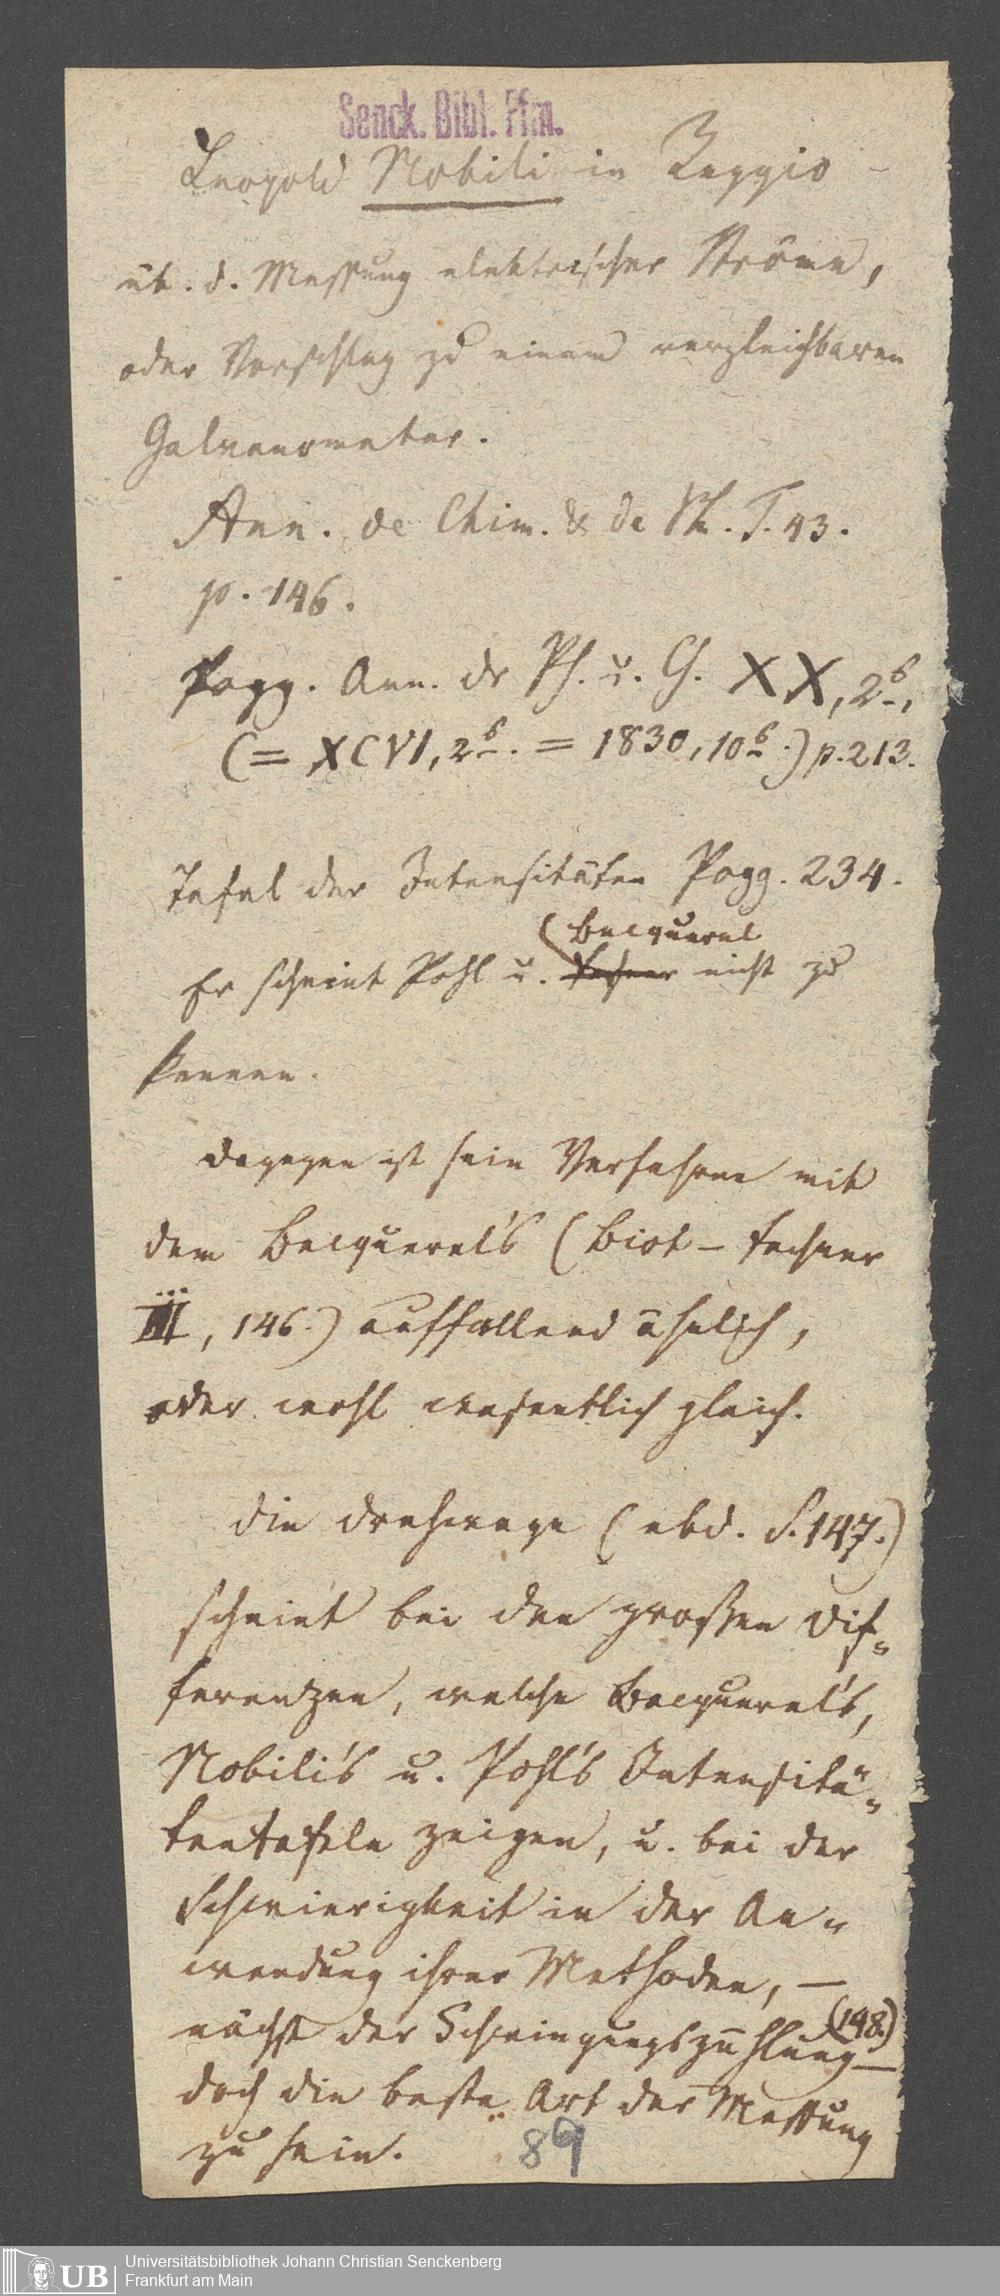 Senck. Bibl. Ffm.
Leopold Nobili in Reggio –
üb. d. Messung elektrischer Ströme,
oder Vorschlag zu einem vergleichbaren
Galvanometer.
Ann. de Chim. & de Ph. T. 43.
p. 146.
Pogg. Ann. dr Ph. u. Ch. XX, 2s,
(= XCVI, 2s. = 1830, 10s.) p. 213.
Tafel der Intensitäten Pogg. 234.
(Becquerel
Er scheint Pohl u. Fechner nicht zu
kennen.
Dagegen ist sein Verfahren mit
dem Becquerel's (Biot – Fechner
III, 146.) auffallend ähnlich,
oder wohl wesentlich gleich.
Die Drehwage (ebd. S. 147.)
scheint bei den großen Dif-
ferenzen, welche Becquerel's,
Nobili's u. Pohl's Intensitä-
tentafeln zeigen, u. bei der
Schwierigkeit in der An-
wendung ihrer Methoden, –
nächst der Schwingungszählung (148.) –
doch die beste Art der Messung
zu sein.
89
UB
Universitätsbibliothek Johann Christian Senckenberg
Frankfurt am Main